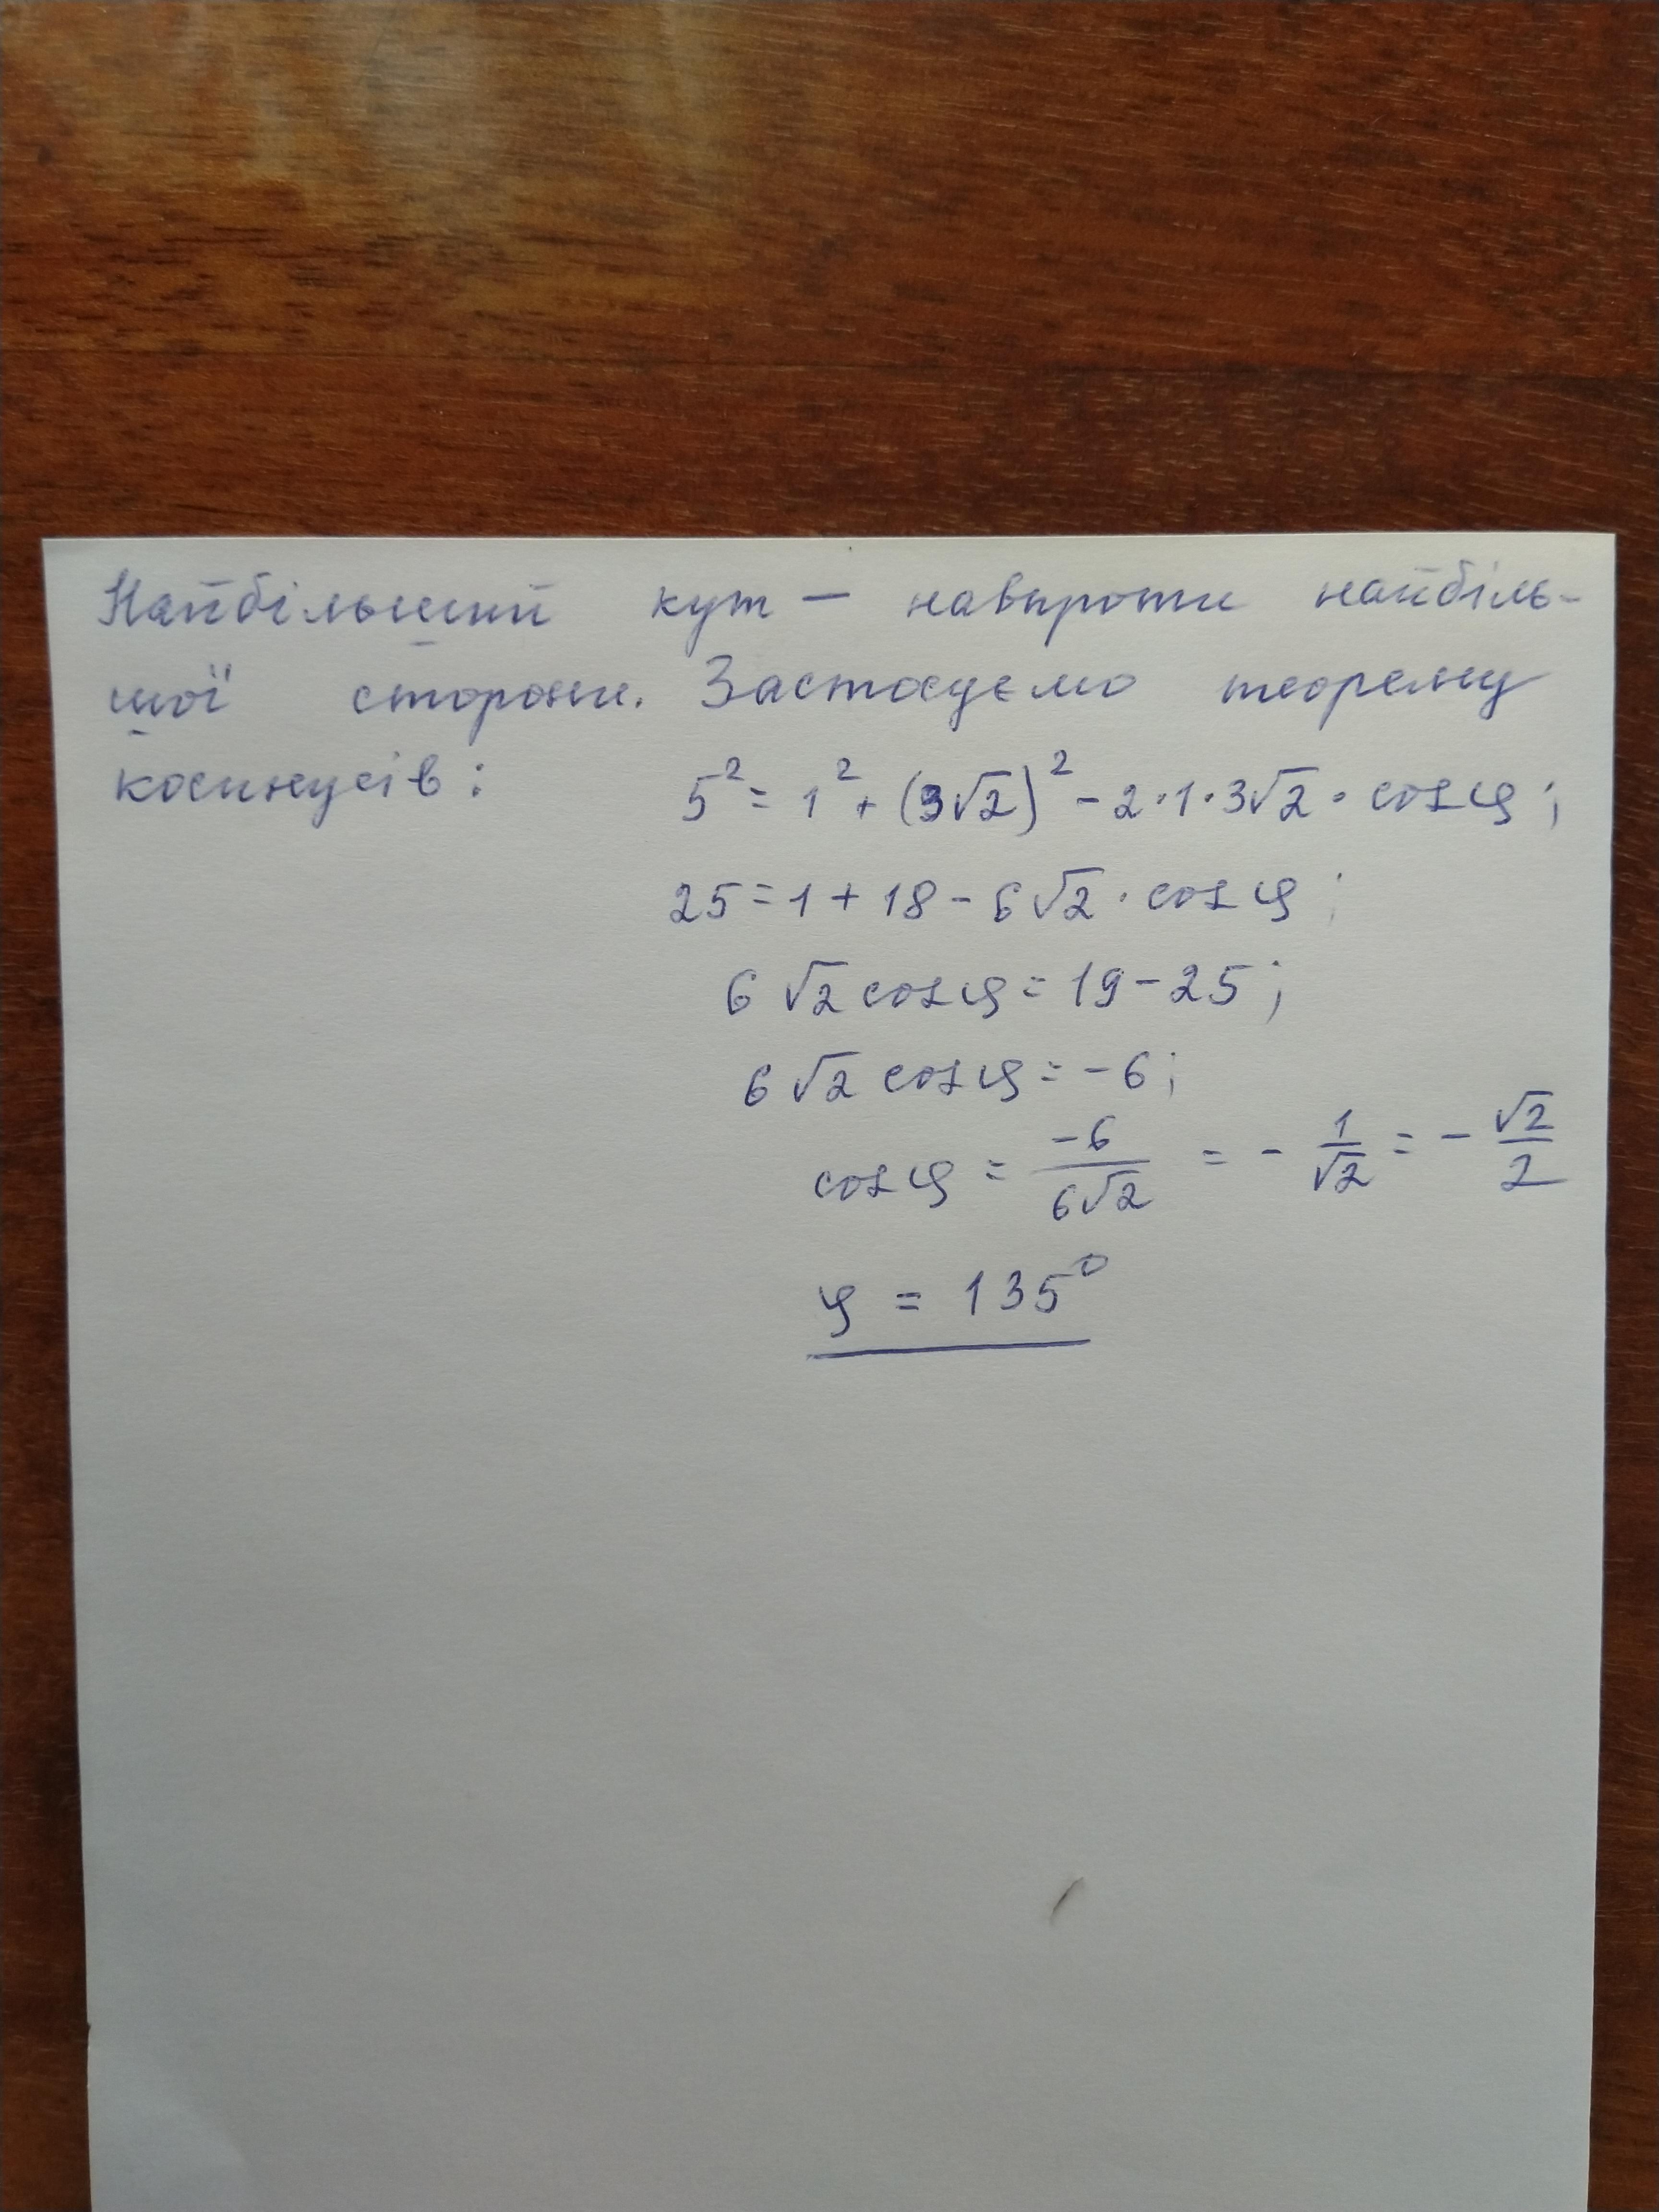 Найбільший кут — навпроти найбіль-
шої сторони. Застосуємо теорему
косинусів: 5² = 1² + (3√2)² - 2·1·3√2 · cos φ;
25 = 1 + 18 - 6√2 · cos φ;
6√2 cos φ = 19 - 25;
6√2 cos φ = -6;
cos φ = -6/6√2 = - 1/√2 = - √2/2
φ = 135°